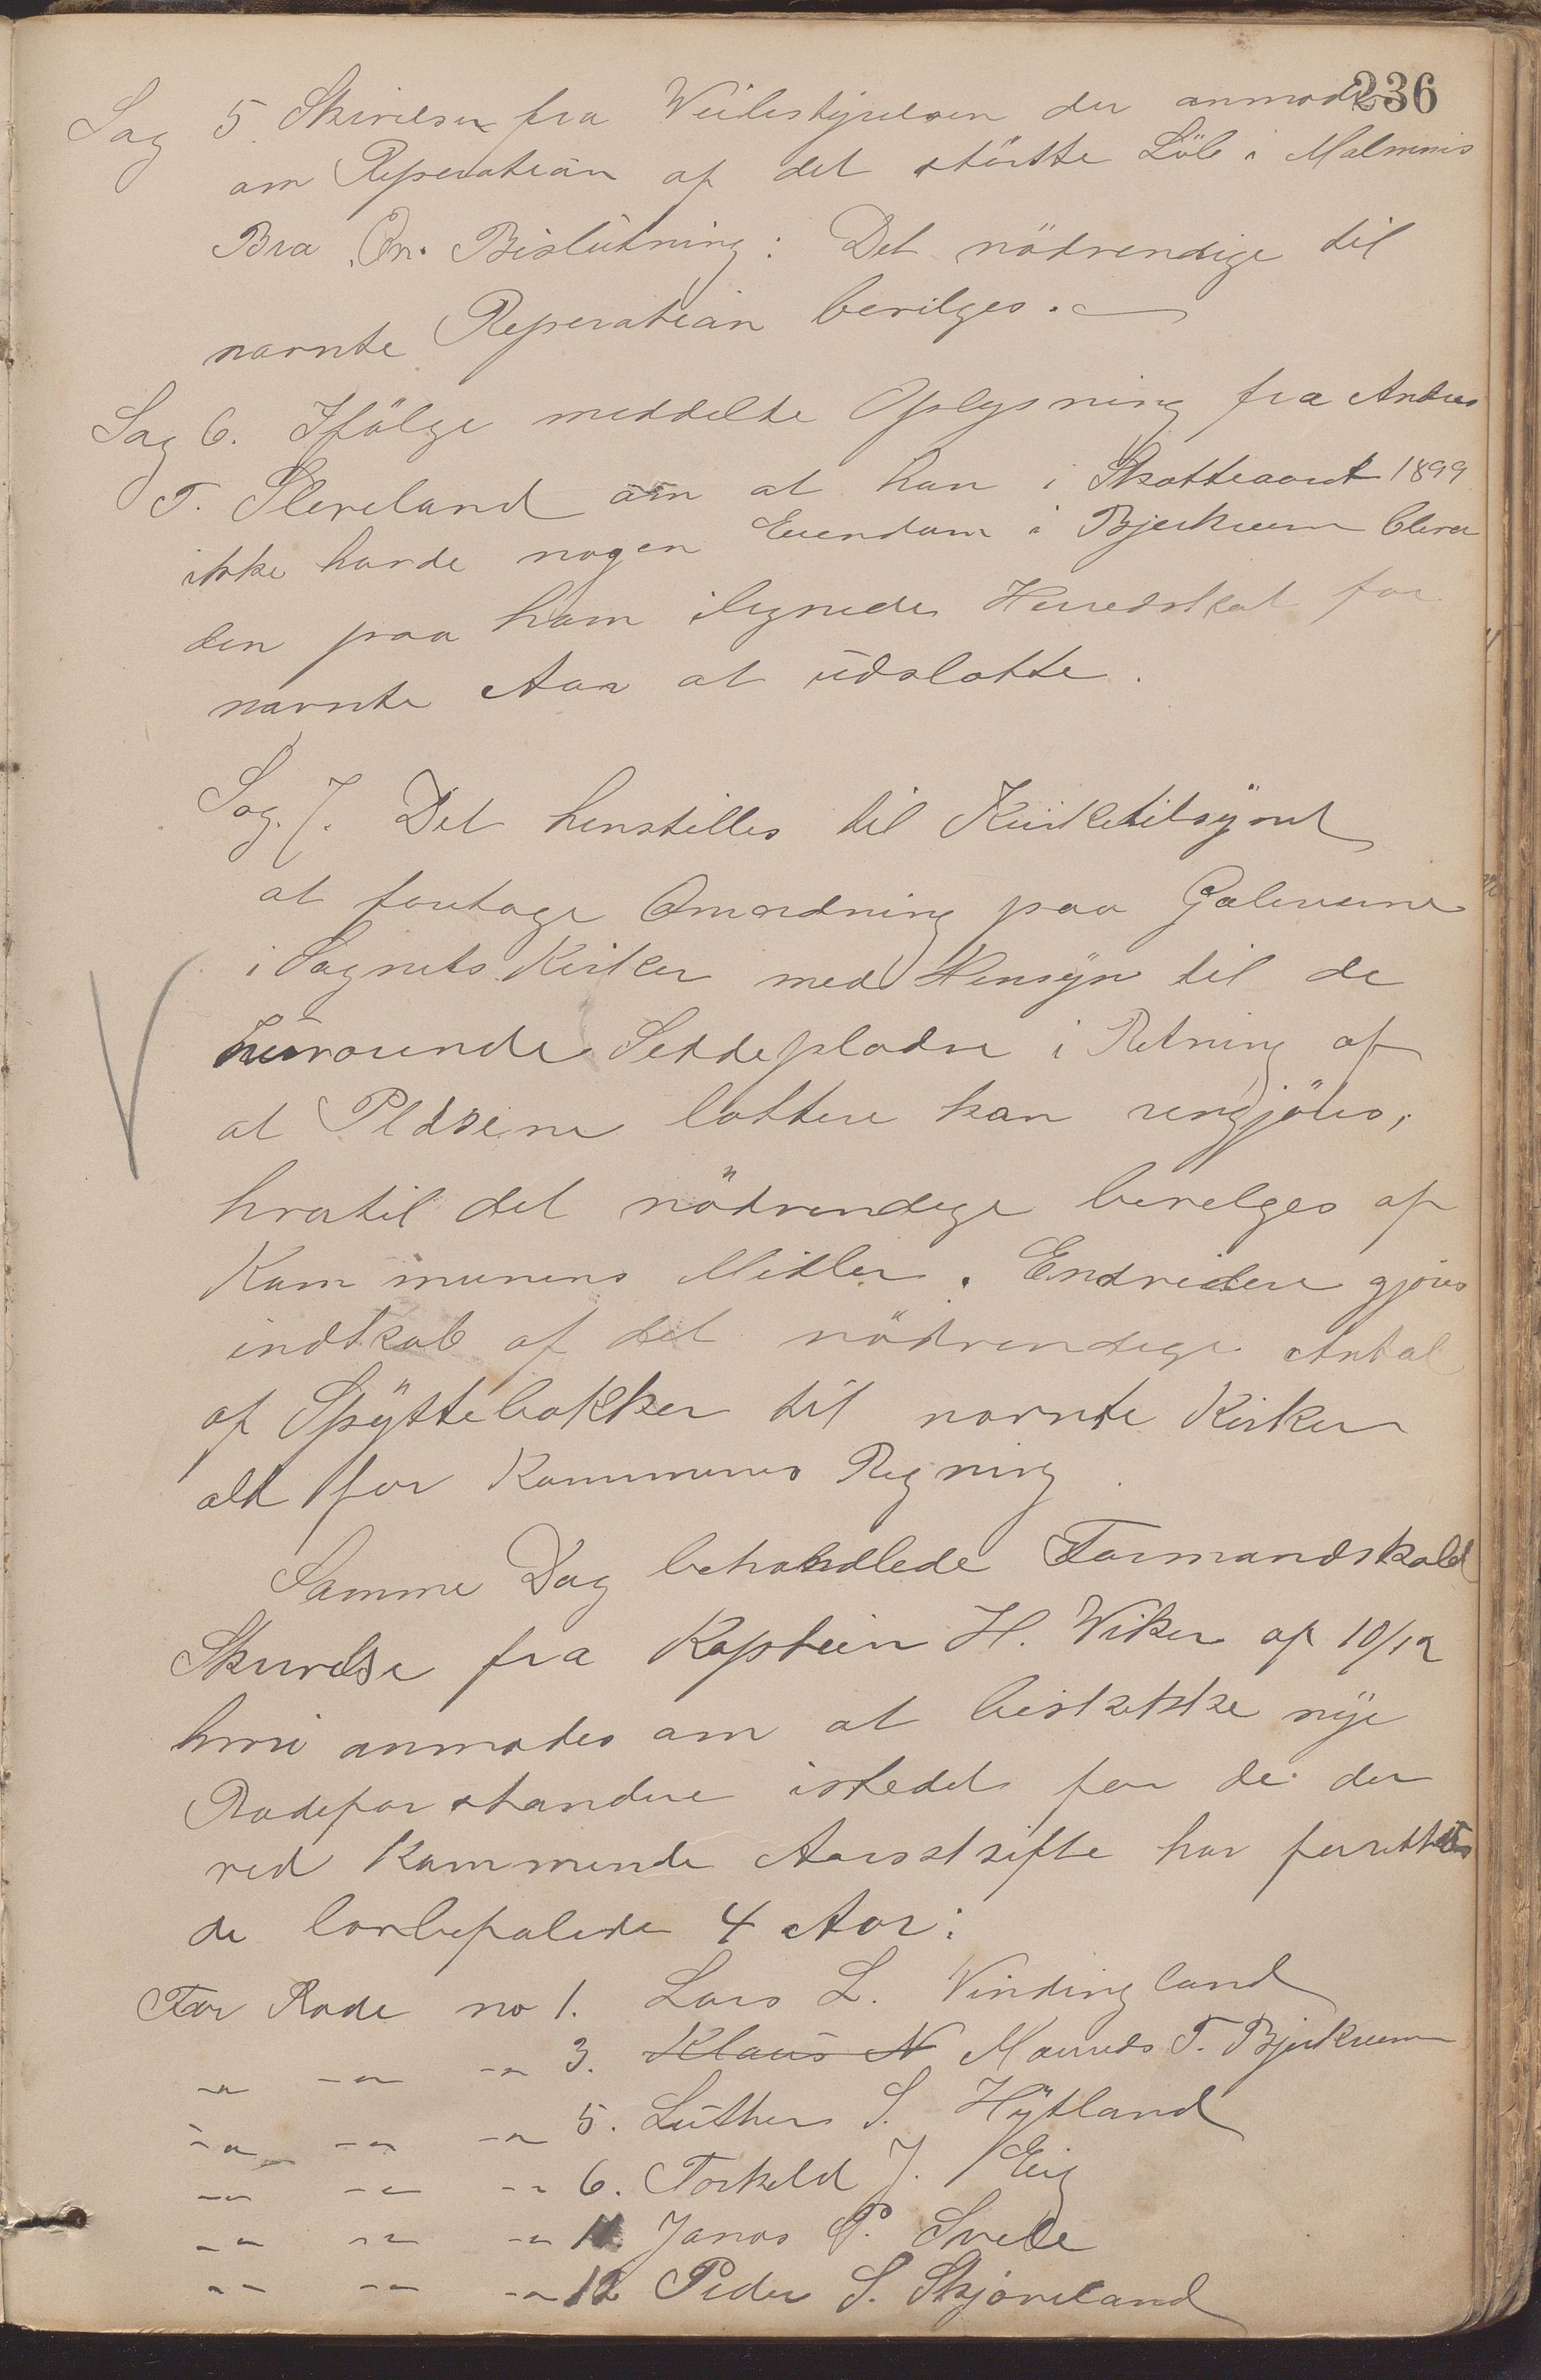 236
Sag 5 Skrivelse fra Veibestyrelsen der anmoder
om Reperation af det störtte Löb i Malmeis
Bra En. Beslutning: Det nödvendige til
nævnte Reperation bevilges.
Sag 6. Ifölge meddelte Oplysning fra Andres
T. Sleveland om at han i Skatteaaret 1899
ikke havde nogen Eiendom i Bjerkreim blev
den paa ham ilignede Herredskat for
nævnte Aar at udslætte.
Sag. 7. Det henstilles til Kirketilsynet
at foretage Omordning paa Galerierne
i Sognets Kirker med Hensyn til de
nuværende Siddepladse i Retning af
at Pladsene lettere kan rengjöres,
hvortil det nödvendige bevilges af
Kommunens Midler. Endvidere gjöres
indkjöb af det nödvendige Antal
af Spyttebakker til nævnte Kirker
alt for Kommunens Regning
Samme Dag behandlede Formandskabet
Skrivelse fra Kaptein H. Wiker af 10/12
hvori anmodes om at beskikke nye
Rodeforstandere istedet for de der
ved kommende Aarsskifte har forrettet
de lovbefalede 4 Aar:
For Rode no 1. Lars L. Vindingland
-"- -"- -"- 3. Klaus N Maurids T. Bjerkreim
-"- -"- -"- 5. Luther S. Hytland
-"- -"- -"- 6. Torkeld J. Eig
-"- -"- -"- 11. Janas P. Svele
-"- -"- -"- 12 Peder S. Skjæveland